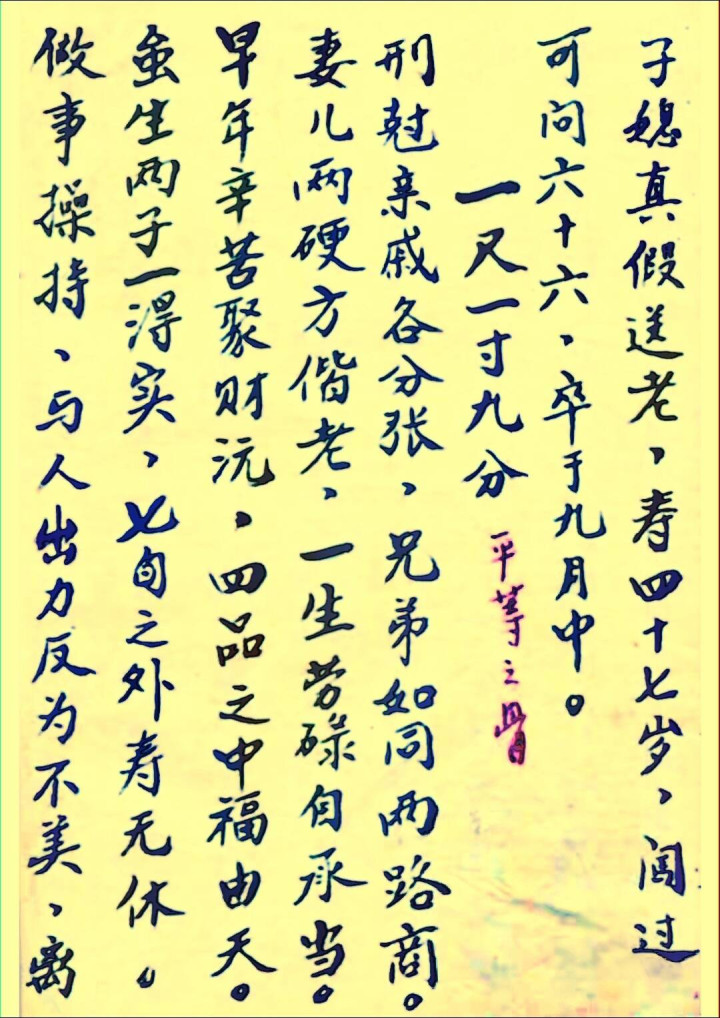 子媳真假送老，寿四十七岁，闯过
可问六十六，卒于九月中。
一尺一寸九分 平等之骨
刑尅亲戚各分张，兄弟如同两路商。
妻儿两硬方偕老，一生劳碌自承当。
早年辛苦聚财沅，四品之中福由天。
虽生两子一得实，七旬之外寿无休。
做事操持、与人出力反为不美，离